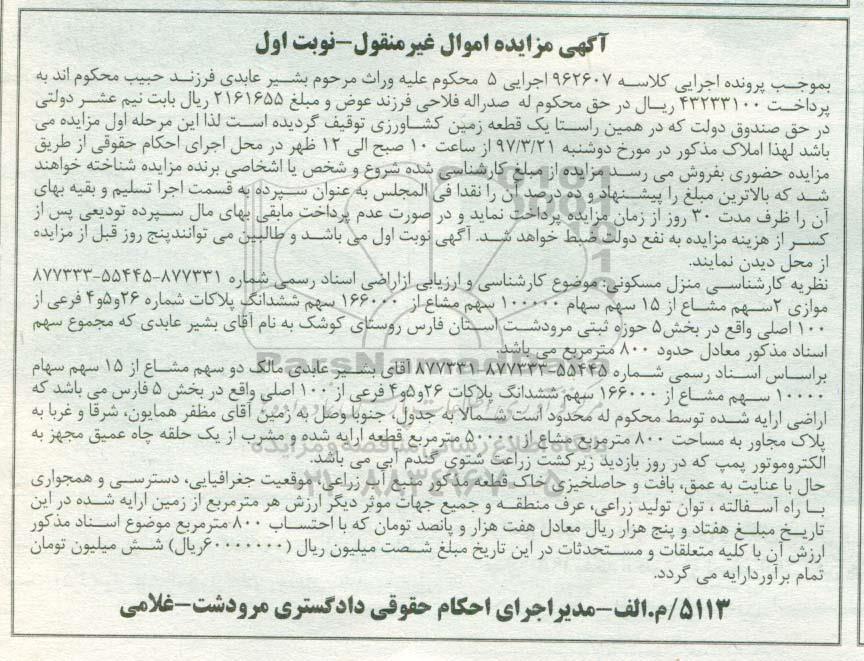 آگهی مزایده اموال غیرمنقول-نوبت اول
بموجب پرونده اجرایی کلاسه ۹۶۲۶۰۷ اجرایی ۵ محکوم علیه وراث مرحوم بشیر عابدی فرزند حبیب محکوم اند به
پرداخت ۴۳۲۳۳۱۰۰ ریال در حق محکوم له صدراله فلاحی فرزند عوض و مبلغ ۲۱۶۱۶۵۵ ریال بابت نیم عشر دولتی
در حق صندوق دولت که در همین راستا یک قطعه زمین کشاورزی توقیف گردیده است لذا این مرحله اول مزایده می
باشد لهذا املاک مذکور در مورخ دوشنبه ۹۷/۳/۲۱ از ساعت ۱۰ صبح الی ۱۲ ظهر در محل اجرای احکام حقوقی از طریق
مزایده حضوری بفروش می رسد مزایده از مبلغ کارشناسی شده شروع و شخص یا اشخاصی برنده مزایده شناخته خواهند
شد که بالاترین مبلغ را پیشنهاد و ده درصد آن را نقدا فی المجلس به عنوان سپرده به قسمت اجرا تسلیم و بقیه بهای
آن را ظرف مدت ۳۰ روز از زمان مزایده پرداخت نماید و در صورت عدم پرداخت مابقی بهای مال سپرده تودیعی پس از
کسر از هزینه مزایده به نفع دولت ضبط خواهد شد. آگهی نوبت اول می باشد و طالبین می توانندپنج روز قبل از مزایده
از محل دیدن نمایند.
نظریه کارشناسی منزل مسکونی: موضوع کارشناسی و ارزیابی ازاراضی اسناد رسمی شماره ۸۷۷۳۳۱-۵۵۴۴۵-۸۷۷۳۳۳
موازی ۲سهم مشاع از ۱۵ سهم سهام ۱۰۰۰۰۰ سهم مشاع از ۱۶۶۰۰۰ سهم ششدانگ پلاکات شماره ۲۶و۵و۴ فرعی از
۱۰۰ اصلی واقع در بخش۵ حوزه ثبتی مرودشت استان فارس روستای کوشک به نام آقای بشیر عابدی که مجموع سهم
اسناد مذکور معادل حدود ۸۰۰ مترمربع می باشد.
براساس اسناد رسمی شماره ۵۵۴۴۵-۸۷۷۳۳۳ ۸۷۷۳۳۱ آقای بشیر عابدی مالک دو سهم مشاع از ۱۵ سهم سهام
۱۰۰۰۰ سهم مشاع از ۱۶۶۰۰۰ سهم ششدانگ پلاکات ۲۶و۵و۴ فرعی از ۱۰۰ اصلی واقع در بخش ۵ فارس می باشد که
اراضی ارایه شده توسط محکوم له محدود است شمالا به جدول، جنوبا وصل به زمین آقای مظفر همایون، شرقا و غربا به
پلاک مجاور به مساحت ۸۰۰ مترمربع مشاع از ۵۰۰۰۰ مترمربع قطعه ارایه شده و مشرب از یک حلقه چاه عمیق مجهز به
الکتروموتور پمپ که در روز بازدید زیرکشت زراعت شتوی گندم آبی می باشد.
حال با عنایت به عمق، بافت و حاصلخیزی خاک قطعه مذکور منبع آب زراعی، موقعیت جغرافیایی، دسترسی و همجواری
با راه آسفالته ، توان تولید زراعی، عرف منطقه و جمیع جهات موثر دیگر ارزش هر مترمربع از زمین ارایه شده در این
تاریخ مبلغ هفتاد و پنج هزار ریال معادل هفت هزار و پانصد تومان که با احتساب ۸۰۰ مترمربع موضوع اسناد مذکور
ارزش آن با کلیه متعلقات و مستحدثات در این تاریخ مبلغ شصت میلیون ریال (۶۰۰۰۰۰۰۰ریال) شش میلیون تومان
تمام برآوردارایه می گردد.
۵۱۱۳/م.الف-مدیراجرای احکام حقوقی دادگستری مرودشت-غلامی